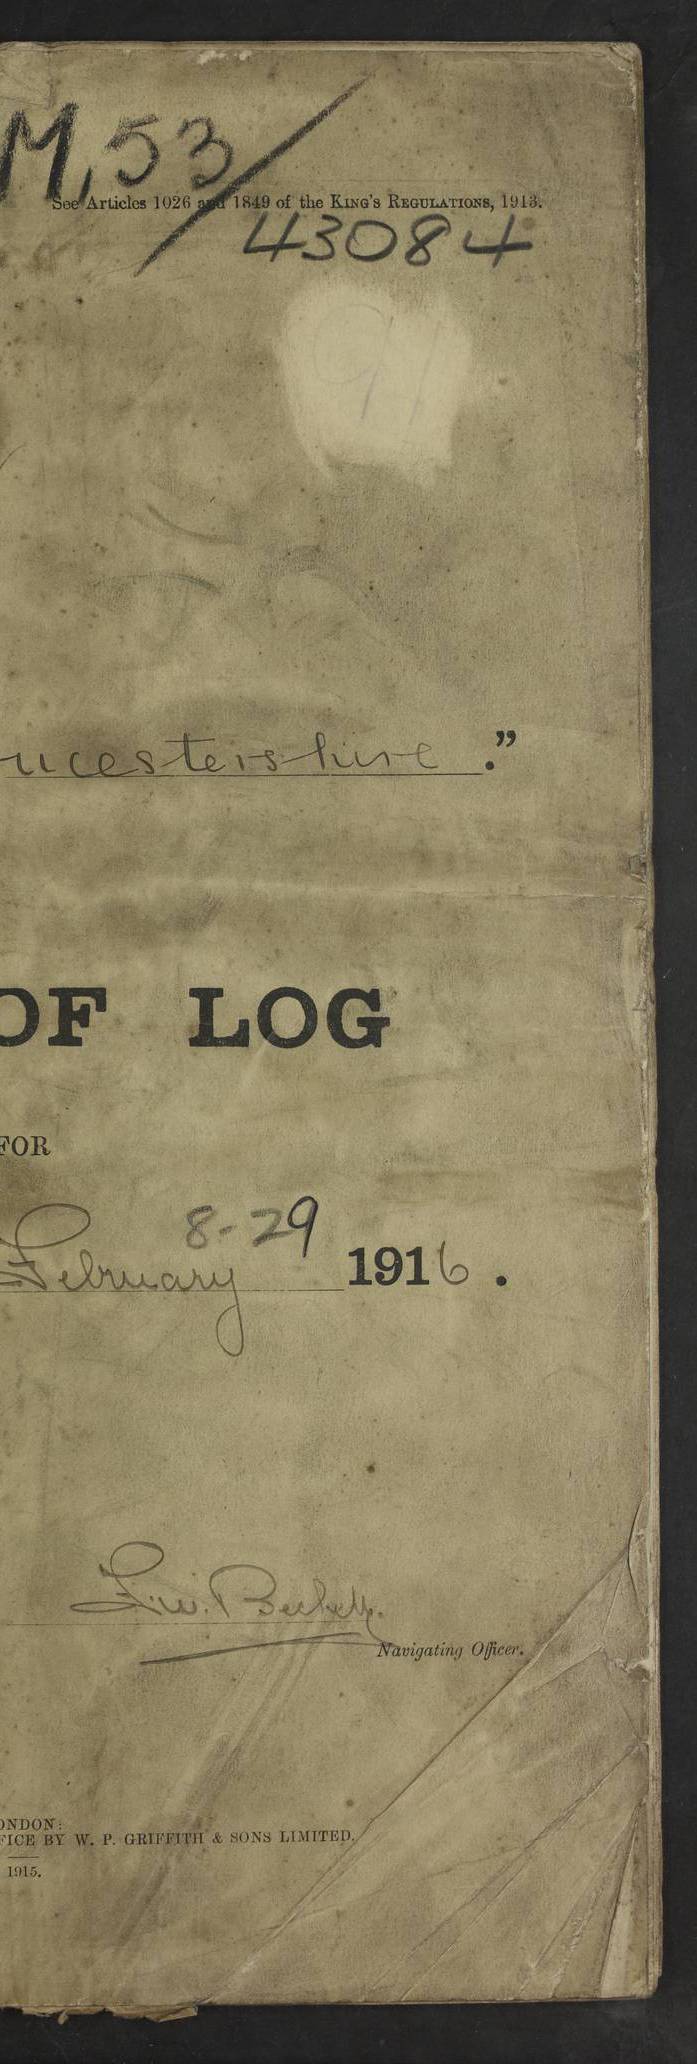 M,53/
See Articles 1026 and 1849 of the KING'S REGULATIONS, 1913.
43084
91
ucestershire ."
OF LOG
FOR
February 8-29 1916 .
Navigating Officer.
ONDON:
FICE BY W. P. GRIFFITH & SONS LIMITED.
1915.